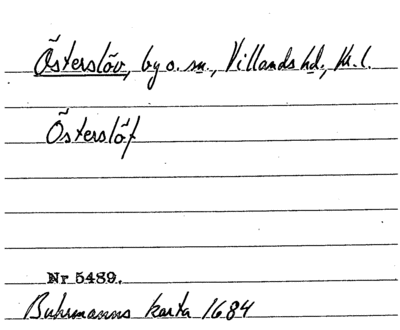 Österslöv, by o. sn., Villands hd., Kr. l.
Österslöf
Nr 5489.
Buhrmanns karta 1684